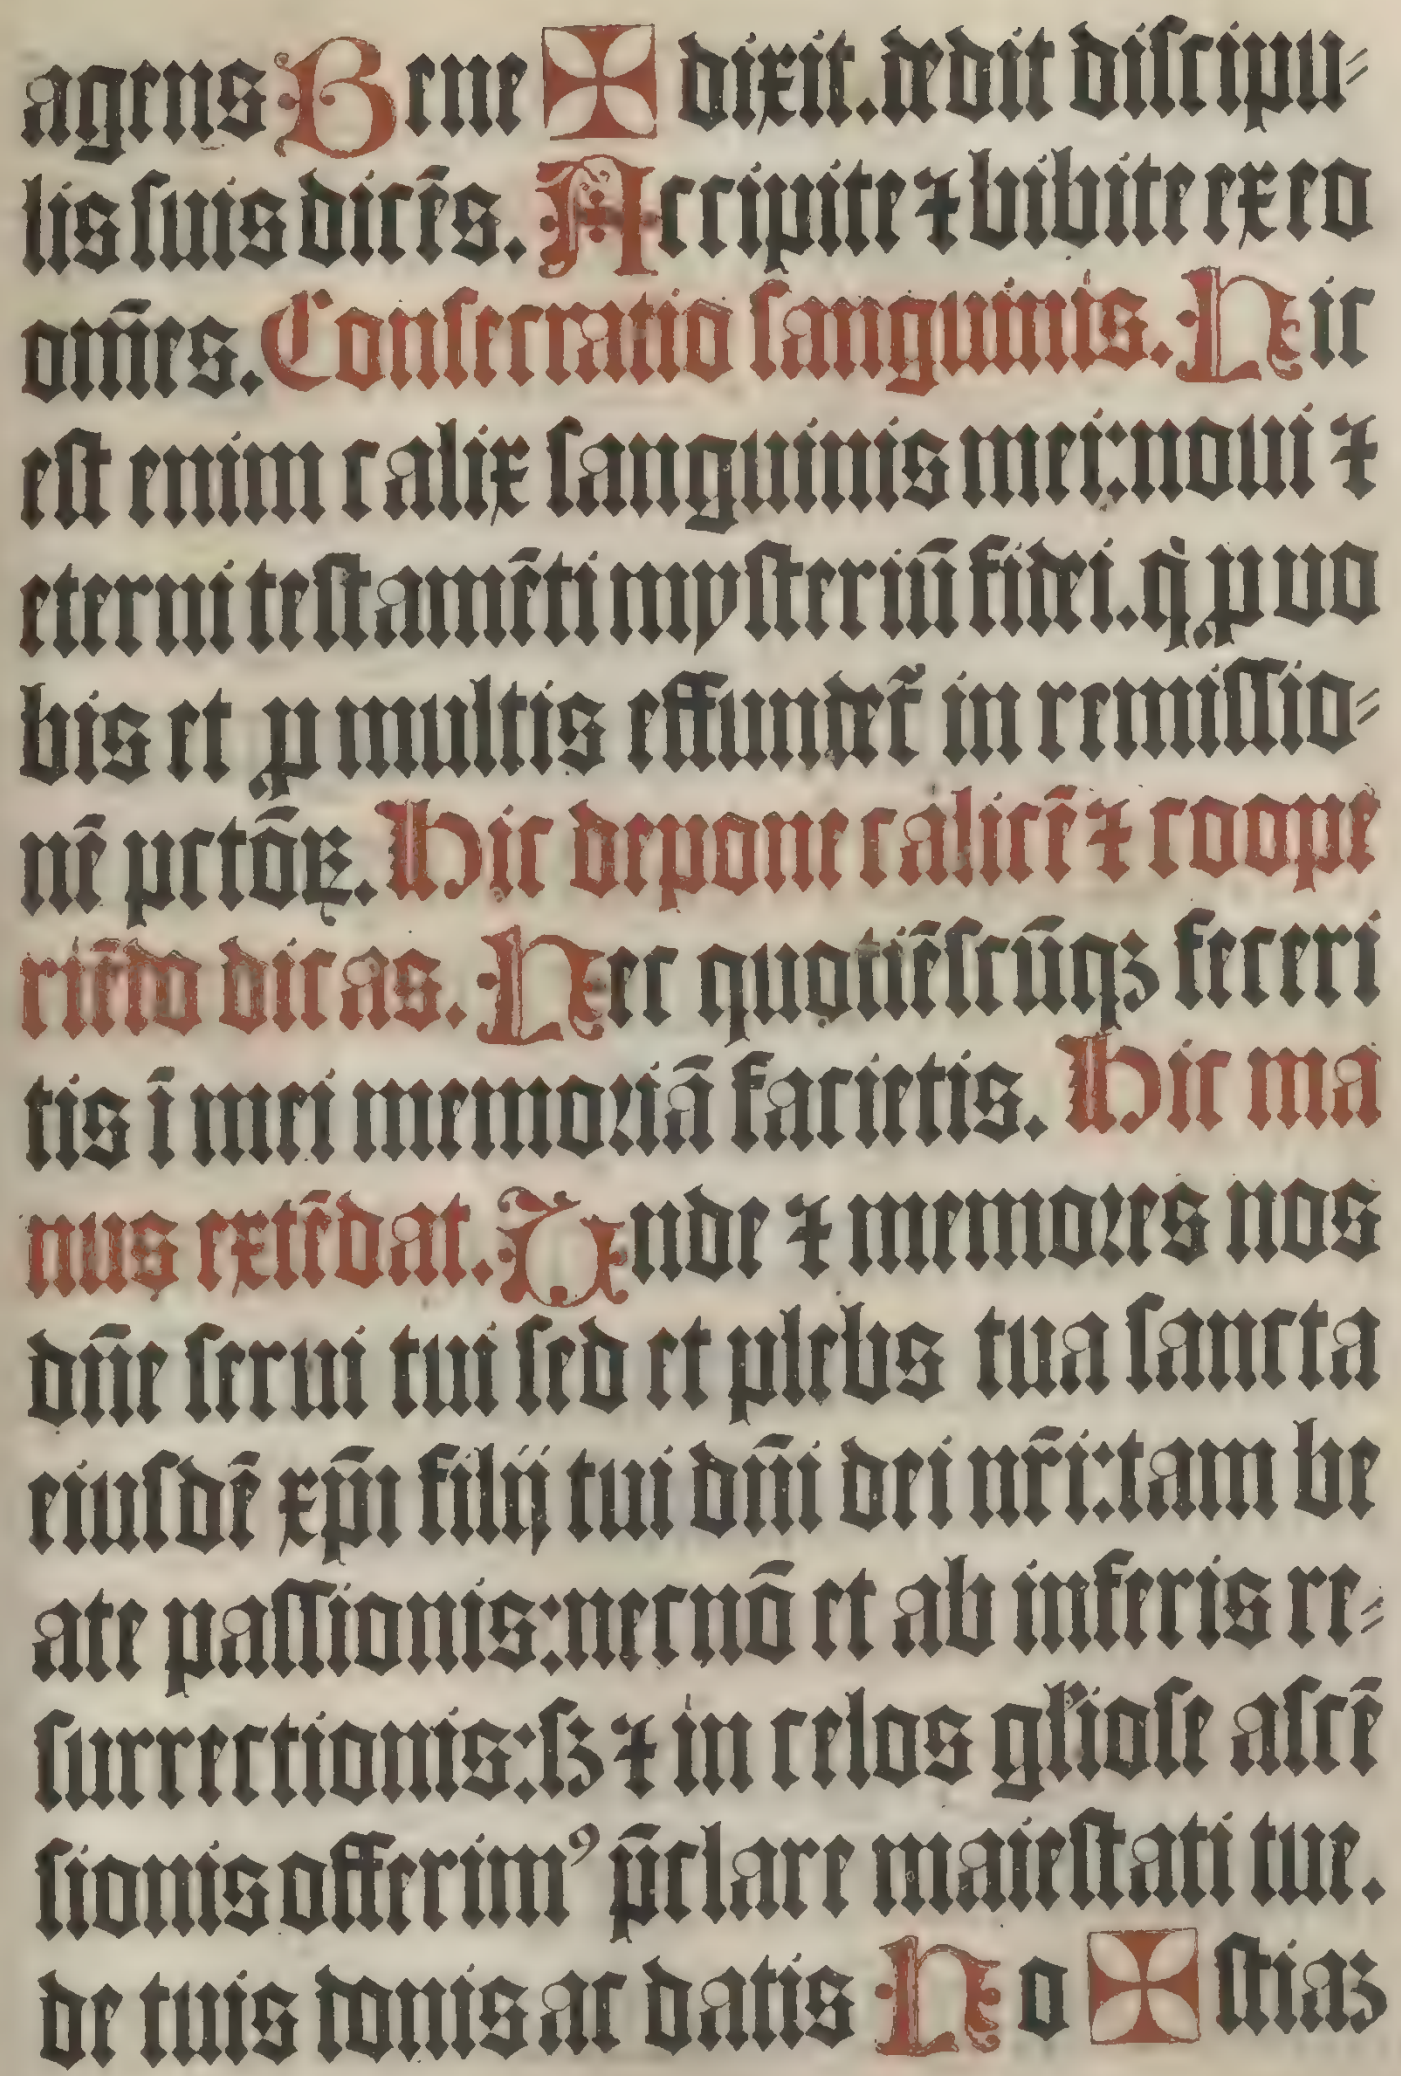 agens Bene ✠ dixit. dedit discipu⸗
lis suis dicēs. Accipite ⁊ bibite ex eo
om̄es. Consecratio sanguinis. Hic
est enim calix sanguinis mei: noui ⁊
eterni testamēti mysteriū fidei. q̇ ꝓ vo
bis et ꝓ multis effundet̃ in remissio⸗
nē pctōꝝ. Hic depone calicē ⁊ coope
riēdo dicas. Hec quotiēscūqꝫ feceri
tis ī mei memoꝛiā facietis. Hic ma
nus extēdat. Unde ⁊ memoꝛes nos
dn̄e serui tui sed et plebs tua sancta
eiusdē xp̄i filij tui dn̄i dei nr̄i: tam be
ate passionis: necnō et ab inferis re⸗
surrectionis: sꝫ ⁊ in celos gl'iose ascē
sionis offerimꝰ p̄clare maiestati tue.
de tuis donis ac datis Ho ✠ stiaꝫ